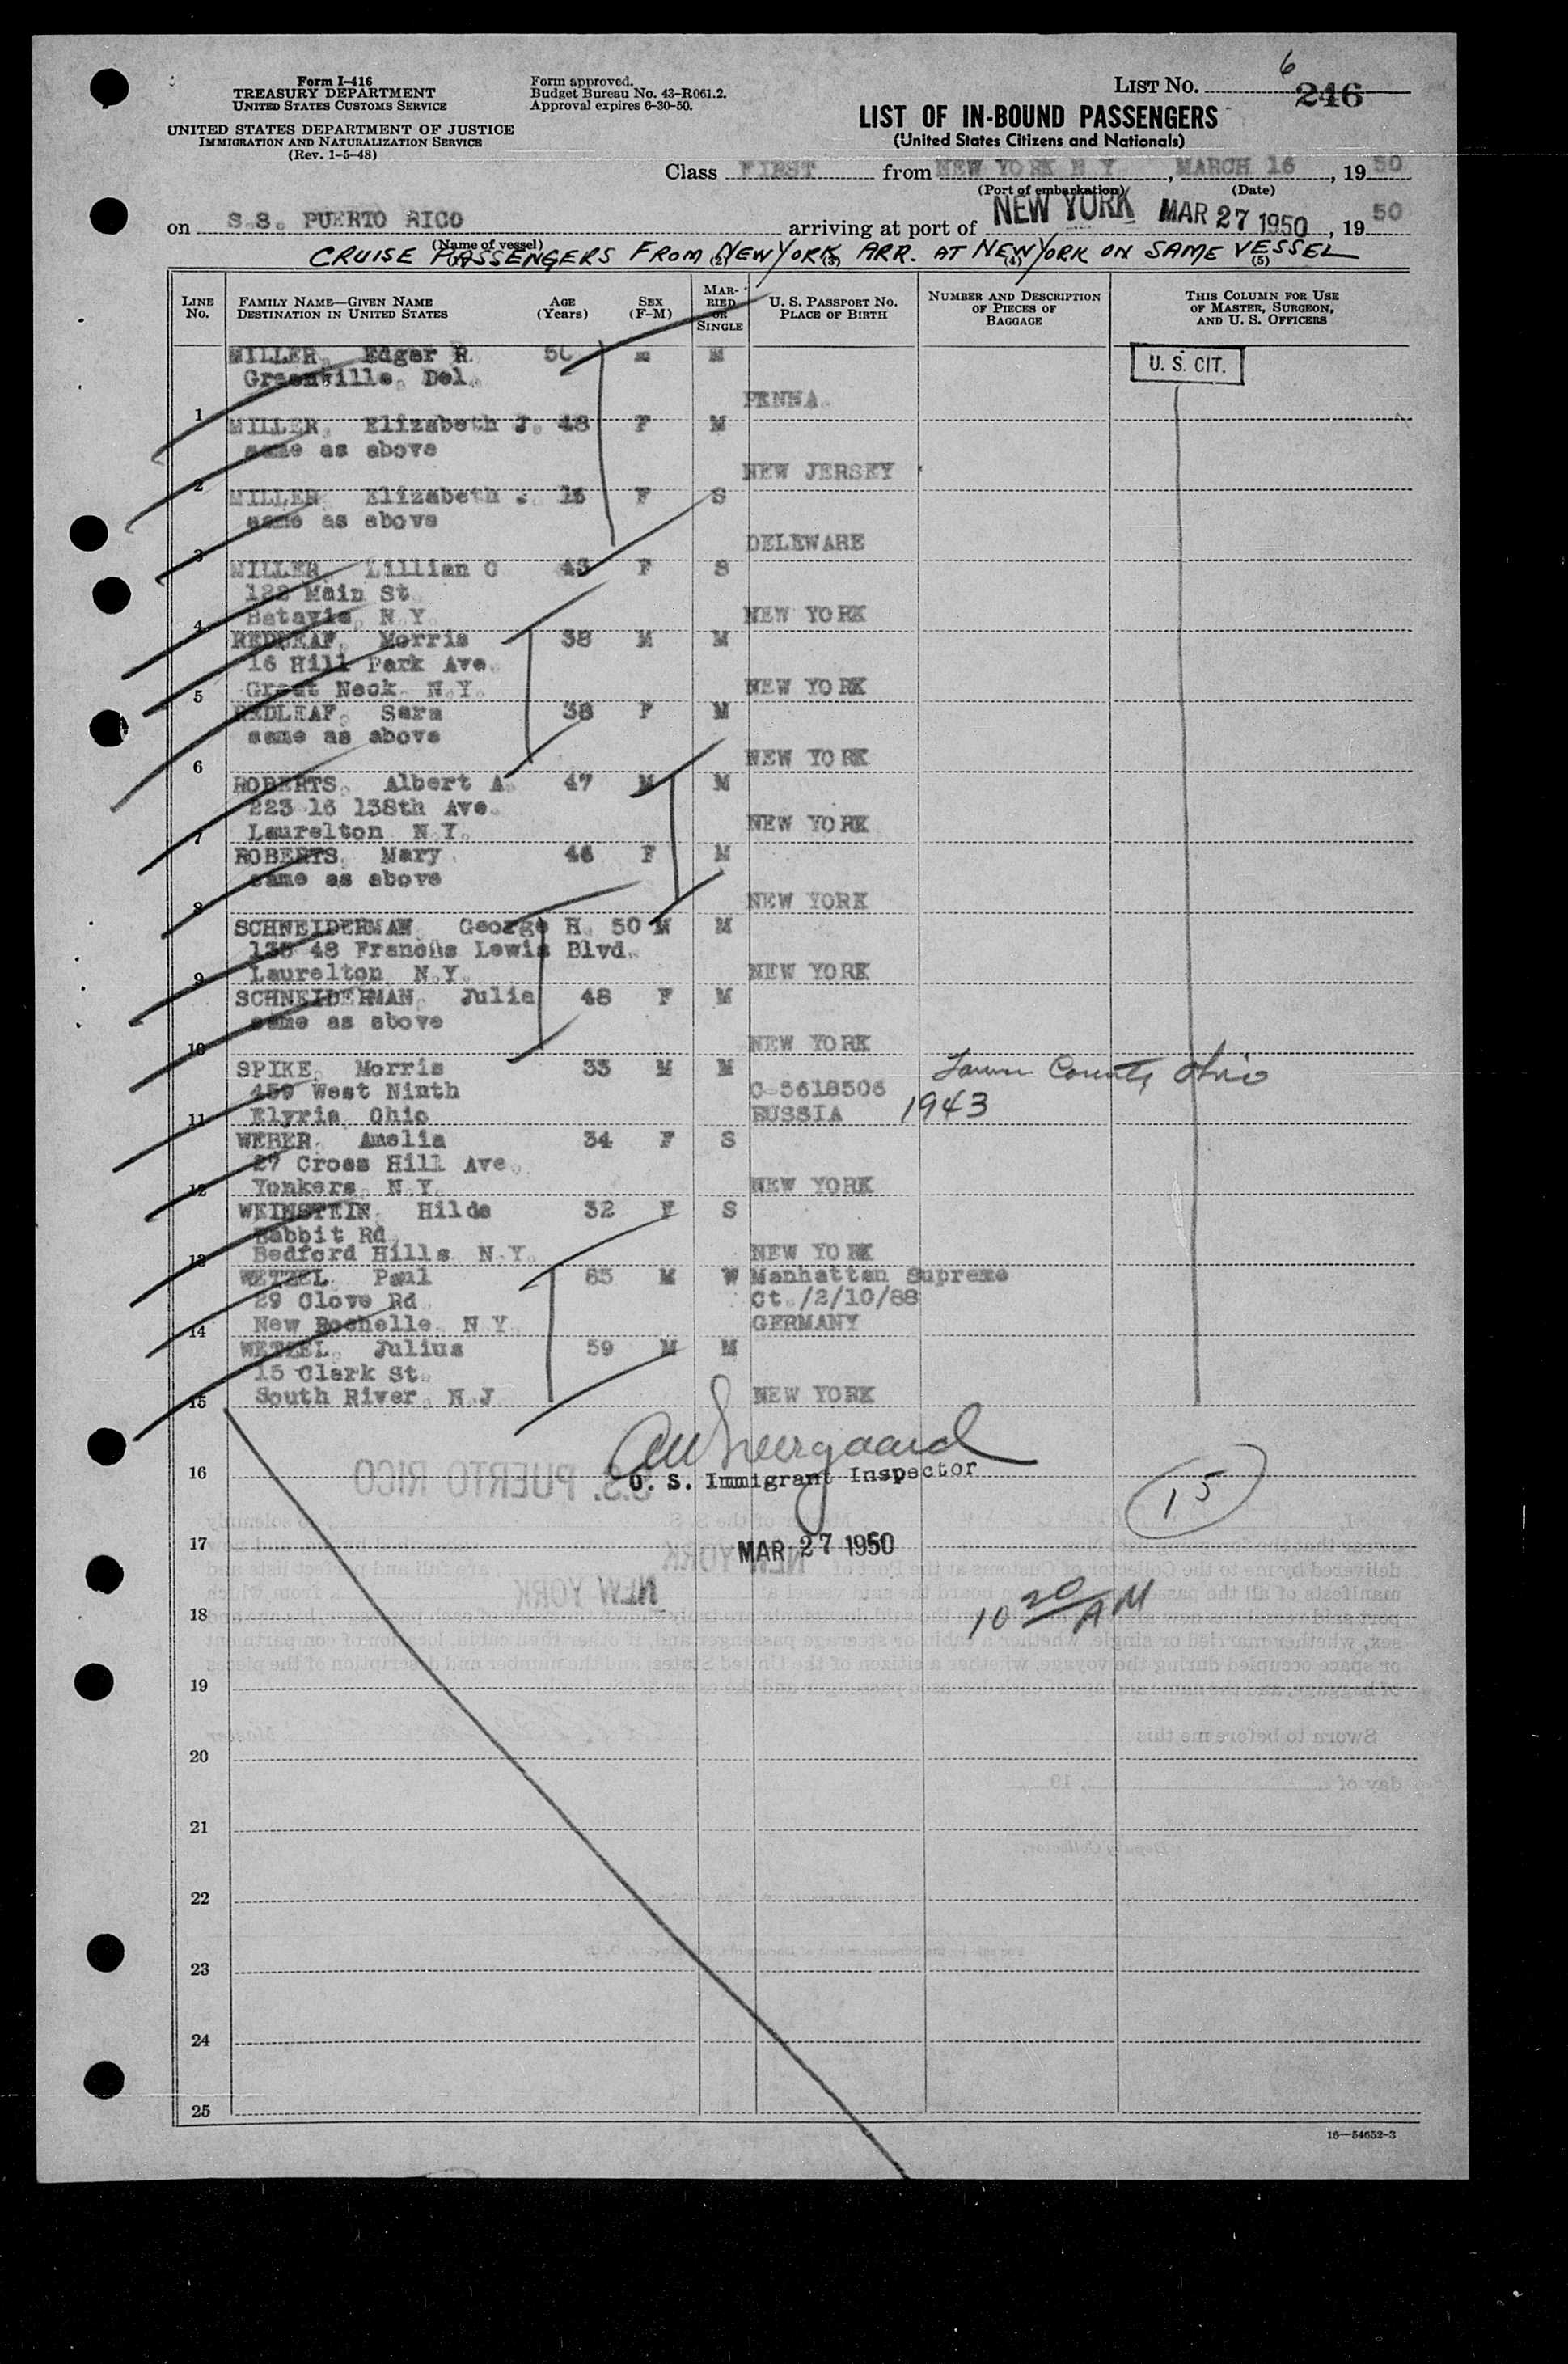 Form I-416
TREASURY DEPARTMENT
UNITED STATES CUSTOMS SERVICE
UNITED STATES DEPARTMENT OF JUSTICE
IMMIGRATION AND NATURALIZATION SERVICE
(Rev. 1-5-48)
Form approved.
Budget Bureau No. 43-R061.2.
Approval expires 6-30-50.
LIST NO. 6
246
LIST OF IN-BOUND PASSENGERS
(United States Citizens and Nationals)
Class FIRST from NEW YORK N Y, MARCH 16, 1950
(Port of embarkation) (Date)
on S.S. PUERTO RICO arriving at port of NEW YORK MAR 27 1950, 1950
(Name of vessel)
CRUISE PASSENGERS FROM NEW YORK ARR. AT NEW YORK ON SAME VESSEL
(2) (3) (4) (5)
LINE NO. FAMILY NAME—GIVEN NAME DESTINATION IN UNITED STATES AGE (Years) SEX (F-M) MARRIED OR SINGLE U. S. PASSPORT NO. PLACE OF BIRTH NUMBER AND DESCRIPTION OF PIECES OF BAGGAGE THIS COLUMN FOR USE OF MASTER, SURGEON, AND U. S. OFFICERS
MILLER, Edgar R. M M U. S. CIT.
Greenville, Del.
1 PENNA.
MILLER, Elizabeth J. 48 F M
same as above
2 NEW JERSEY
MILLER Elizabeth J. 16 F S
same as above
3 DELEWARE
MILLER, Lillian C 45 F S
122 Main St.
4 Batavia, N.Y. NEW YORK
REDLEAF, Morris 38 M M
16 Hill Park Ave.
5 Great Neck. N.Y. NEW YORK
REDLEAF, Sara 38 F M
same as above
6 NEW YORK
ROBERTS, Albert A. 47 M M
223 16 138th Ave.
7 Laurelton N.Y. NEW YORK
ROBERTS, Mary 46 F M
same as above
8 NEW YORK
SCHNEIDERMAN, George H. 50 M M
135 48 Francis Lewis Blvd.
9 Laurelton N.Y. NEW YORK
SCHNEIDERMAN, Julia 48 F M
same as above
10 NEW YORK
SPIKE, Morris 33 M M County, Ohio
459 West Ninth C-5618506
11 Elyria, Ohio RUSSIA 1943
WEBER, Amelia 34 F S
27 Cross Hill Ave.
12 Yonkers, N.Y. NEW YORK
WEINSTEIN, Hilda 32 F S
Babbit Rd.
13 Bedford Hills N.Y. NEW YORK
WETZEL, Paul 85 M W Manhattan Supreme
29 Clove Rd. Ct./2/10/88
14 New Rochelle, N.Y. GERMANY
WETZEL, Julius 59 M M
15 Clark St.
15 South River, N.J. NEW YORK
16 U. S. Immigrant Inspector 15
17 MAR 27 1950
18 10 20 AM
19
20
21
22
23
24
25
16—54652-3